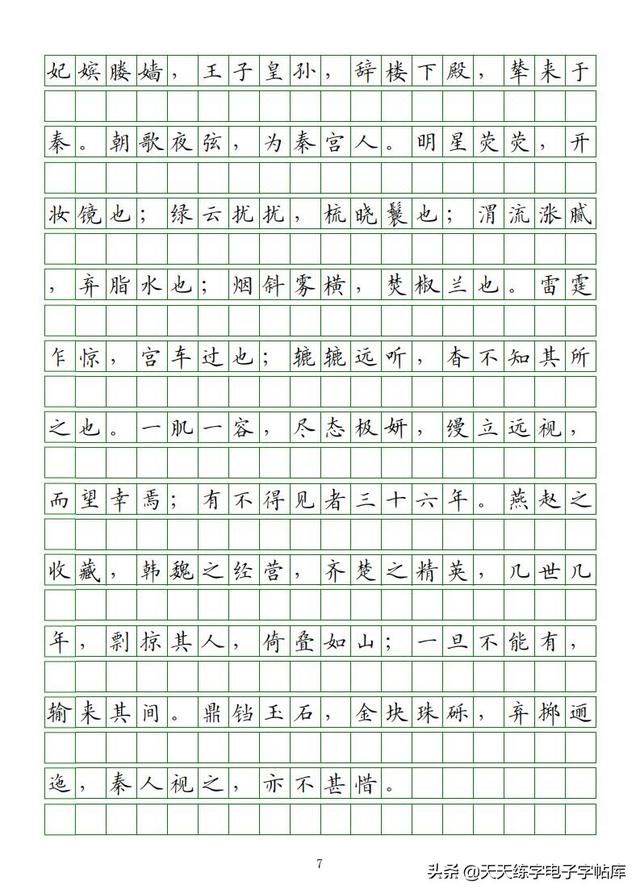 妃嫔媵嫱，王子皇孙，辞楼下殿，辇来于
秦。朝歌夜弦，为秦宫人。明星荧荧，开
妆镜也；绿云扰扰，梳晓鬟也；渭流涨腻
，弃脂水也；烟斜雾横，焚椒兰也。雷霆
乍惊，宫车过也；辘辘远听，杳不知其所
之也。一肌一容，尽态极妍，缦立远视，
而望幸焉；有不得见者三十六年。燕赵之
收藏，韩魏之经营，齐楚之精英，几世几
年，剽掠其人，倚叠如山；一旦不能有，
输来其间。鼎铛玉石，金块珠砾，弃掷逦
迤，秦人视之，亦不甚惜。
7
头条 @天天练字电子字帖库